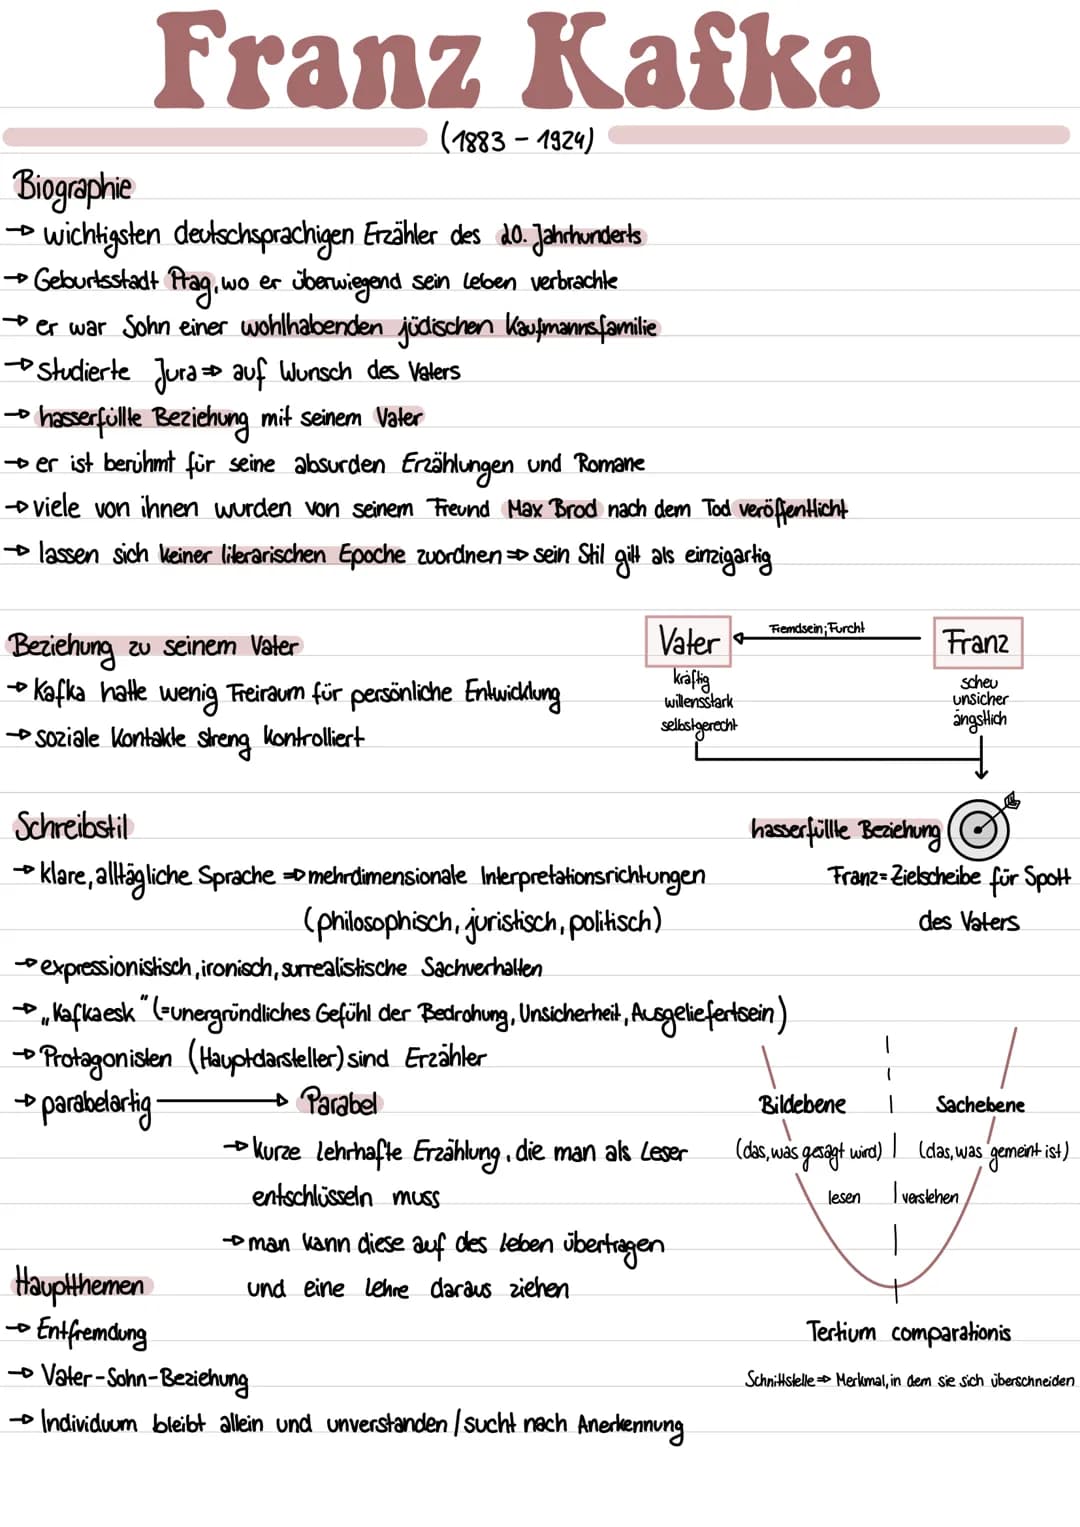 Franz Kafka
(1883 - 1924)
Biographie
→ wichtigsten deutschsprachigen Erzähler des 20. Jahrhunderts
→ Geburtsstadt Prag, wo er überwiegend sein Leben verbrachte
→ er war Sohn einer wohlhabenden jüdischen Kaufmannsfamilie
→ Studierte Jura ⇒ auf Wunsch des Vaters
→ hasserfüllte Beziehung mit seinem Vater
→ er ist berühmt für seine absurden Erzählungen und Romane
→ viele von ihnen wurden von seinem Freund Max Brod nach dem Tod veröffentlicht
→ lassen sich keiner literarischen Epoche zuordnen ⇒ sein Stil gilt als einzigartig
Beziehung zu seinem Vater
→ Kafka hatte wenig Freiraum für persönliche Entwicklung
→ soziale Kontakte streng kontrolliert
Vater
Fremdsein; Furcht
Franz
kräftig
willensstark
selbstgerecht
scheu
unsicher
ängstlich
hasserfüllte Beziehung
Franz = Zielscheibe für Spott
des Vaters
Schreibstil
→ klare, alltägliche Sprache ⇒ mehrdimensionale Interpretationsrichtungen
(philosophisch, juristisch, politisch)
→ expressionistisch, ironisch, surrealistische Sachverhalten
→ „Kafkaesk" (=unergründliches Gefühl der Bedrohung, Unsicherheit, Ausgeliefertsein)
→ Protagonisten (Hauptdarsteller) sind Erzähler
→ parabelartig → Parabel
→ kurze lehrhafte Erzählung, die man als Leser
entschlüsseln muss
→ man kann diese auf des Leben übertragen
und eine Lehre daraus ziehen
Bildebene | Sachebene
(das, was gesagt wird) | (das, was gemeint ist)
lesen | verstehen
Tertium comparationis
Schnittstelle ⇒ Merkmal, in dem sie sich überschneiden
Hauptthemen
→ Entfremdung
→ Vater-Sohn-Beziehung
→ Individuum bleibt allein und unverstanden / sucht nach Anerkennung